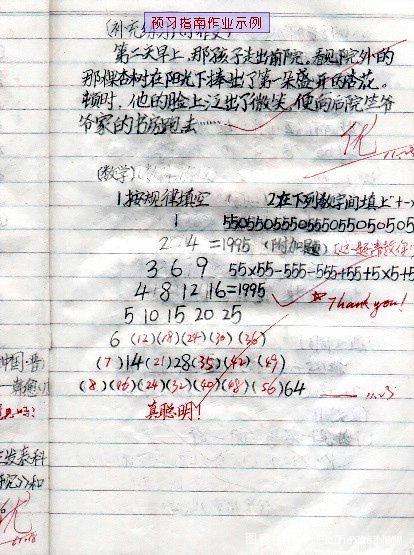 预习指南作业示例
(补充练习
第二天早上,那孩子走出前院。看见院外的
那棵杏树在阳光下捧出了第一朵盛开的杏花。
顿时,他的脸上泛出了微笑,便向后院竺爷
爷家的书房跑去……
优
11.22
(数学)
1按规律填空 2在下列数字间填上+-×
1 550550555055055050505
2 4 =1995 (附加题)
3 6 9 55×55-555-555+55+5×5+5
4 8 12 16 =1995
Thank you!
5 10 15 20 25
6 (12)(18)(24)(30)(36)
(7)14(21)28(35)(42)(49)
(8)(16)(24)(32)(40)(48)(56)64
11.23
真聪明!
中国·晋
发泰科
究》和
优